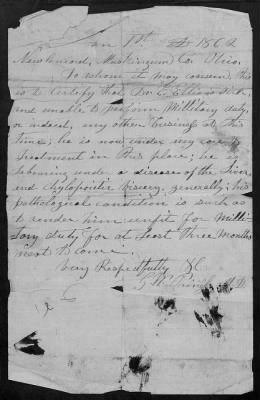 Jan 1st 1862
New Concord, Muskingum Co. Ohio.
To whom it may concern, this
is to certify that Dr. Elliott is sick,
and unable to perform Millitary duty,
or indeed, any other business at this
time; he is now under my care &
treatment in this place; he is
laboring under a disease of the Liver,
and Chylopoietic viscery, generally; his
pathological condition is such as
to render him unfit for Milli-
tary duty for at least three Months
next to come.
Very Respectfully &c
M.D.